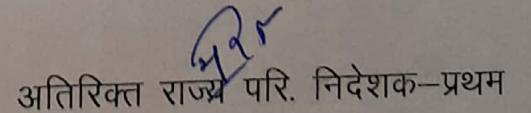 अतिरिक्त राज्य परि. निदेशक–प्रथम